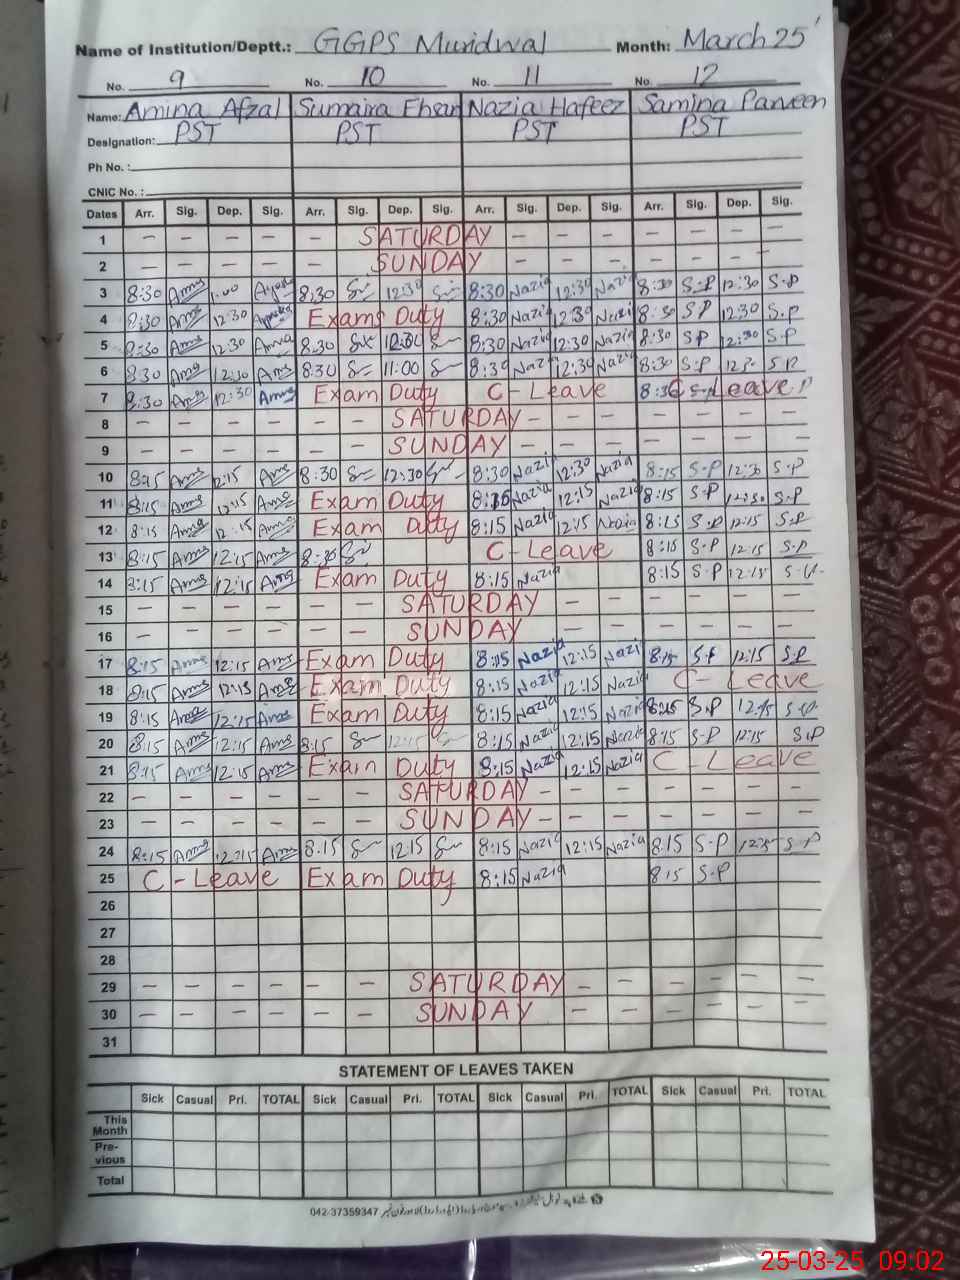 Name of Institution/Deptt.: GGPS Muridwal Month: March 25'
No. 9 No. 10 No. 11 No. 12
Name: Amina Afzal Sumaira Ehan Nazia Hafeez Samina Parveen
Designation: PST PST PST PST
Ph No. :
CNIC No. :
Dates Arr. Sig. Dep. Sig. Arr. Sig. Dep. Sig. Arr. Sig. Dep. Sig. Arr. Sig. Dep. Sig.
1 — — — — — SATURDAY — — — — — — —
2 — — — — — SUNDAY — — — — — — —
3 8:30 1:00 8:30 12:30 8:30 Nazia 12:30 Nazi 8:30 S-P 12:30 S.P
4 8:30 12:30 Exams Duty 8:30 Nazi 12:30 Nazi 8:30 SP 12:30 S.P
5 8:30 12:30 8:30 8:30 Nazia 12:30 Nazia 8:30 S.P 12:30 S.P
6 8:30 12:30 8:30 11:00 8:30 Nazi 12:30 Nazia 8:30 S.P S.P
7 8:30 12:30 Exam Duty C - Leave 8:30 C - Leave P
8 — — — — — — SATURDAY — — — — — —
9 — — — — — — SUNDAY — — — — — —
10 8:15 12:15 8:30 12:30 8:30 Nazi 12:30 Nazia 8:15 S-P 12:30 S-P
11 8:15 12:15 Exam Duty Nazia 12:15 Nazia 8:15 S.P 12:30 S.P
12 8:15 12:15 Exam Duty 8:15 Nazia 12:15 Nazia 8:15 S.P 12:15 S.P
13 8:15 12:15 8:30 C - Leave S.P 12:15 S.P
14 8:15 12:15 Exam Duty 8:15 Nazia 8:15 S.P 12:15
15 — — — — — — SATURDAY — — — — — —
16 — — — — — — SUNDAY — — — — — —
17 8:15 12:15 Exam Duty 8:15 Nazia 12:15 Nazi 8:15 S.P 12:15 S.P
18 8:15 12:15 Exam Duty 8:15 Nazia 12:15 Nazia C - Leave
19 8:15 12:15 Exam Duty 8:15 Nazia 12:15 Nazia 8:15 S.P 12:15 S.P
20 8:15 12:15 8:15 12:15 8:15 Nazia 12:15 Nazia 8:15 S-P 12:15 S.P
21 8:15 12:15 Exam Duty 8:15 Nazia 12:15 Nazia C - Leave
22 — — — — — — SATURDAY — — — — — —
23 — — — — — — SUNDAY — — — — — —
24 8:15 12:15 8:15 12:15 8:15 Nazia 12:15 Nazia 8:15 S-P S.P
25 C - Leave Exam Duty 8:15 Nazia 8:15 S.P
26
27
28
29 — — — — — — SATURDAY — — — — — —
30 — — — — — — SUNDAY — — — — — —
31
STATEMENT OF LEAVES TAKEN
Sick Casual Pri. TOTAL Sick Casual Pri. TOTAL Sick Casual Pri. TOTAL Sick Casual Pri. TOTAL
This Month
Pre-vious
Total
042-37359347
25-03-25 09:02